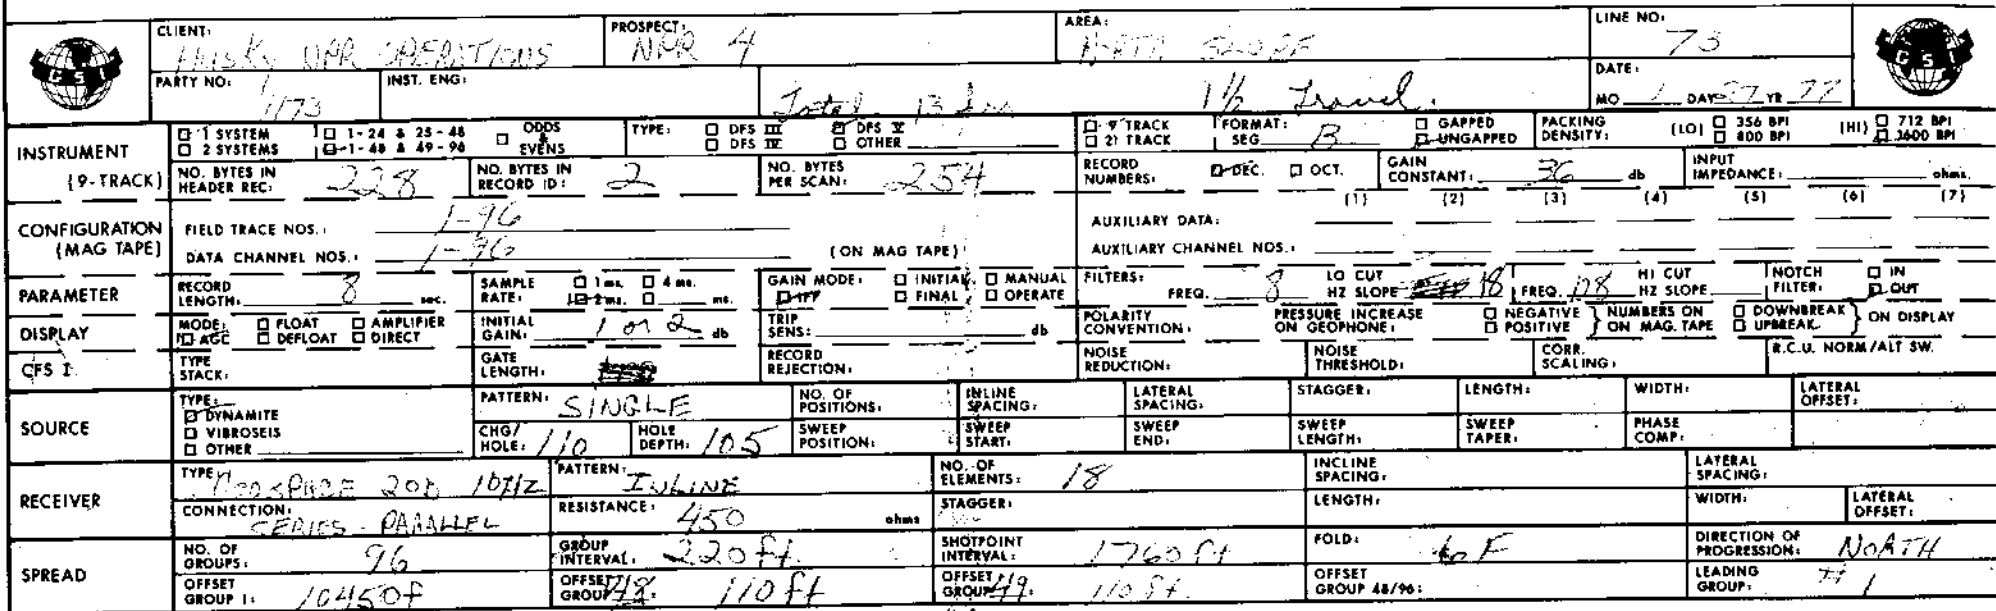 CLIENT: HUSKY NPR OPERATIONS PROSPECT: NPR 4 AREA: NORTH SLOPE LINE NO: 73
GSI GSI
PARTY NO: 1173 INST. ENG: Total 13 hrs 1½ Travel. DATE: MO 1 DAY 27 YR 77
INSTRUMENT (9-TRACK)
1 SYSTEM 1-24 & 25-48 ODDS & EVENS TYPE: DFS III DFS V 9 TRACK FORMAT: GAPPED PACKING DENSITY: (LO) 356 BPI (HI) 712 BPI
2 SYSTEMS 1-48 & 49-96 DFS IV OTHER 21 TRACK SEG B UNGAPPED 800 BPI 1600 BPI
NO. BYTES IN HEADER REC: 228 NO. BYTES IN RECORD ID: 2 NO. BYTES PER SCAN: 254 RECORD NUMBERS: DEC. OCT. GAIN CONSTANT: 36 db INPUT IMPEDANCE: ohms.
CONFIGURATION (MAG TAPE)
(1) (2) (3) (4) (5) (6) (7)
FIELD TRACE NOS.: 1-96 AUXILIARY DATA:
DATA CHANNEL NOS.: 1-96 (ON MAG TAPE) AUXILIARY CHANNEL NOS.:
PARAMETER RECORD LENGTH: 8 sec. SAMPLE RATE: 1 ms. 4 ms. 2 ms. ms. GAIN MODE: INITIAL MANUAL IFP FINAL OPERATE FILTERS: FREQ. 8 LO CUT HZ SLOPE 18 FREQ. 128 HI CUT HZ SLOPE NOTCH FILTER: IN OUT
DISPLAY MODE: FLOAT AMPLIFIER AGC DEFLOAT DIRECT INITIAL GAIN: 1 or 2 db TRIP SENS: db POLARITY CONVENTION: PRESSURE INCREASE ON GEOPHONE: NEGATIVE POSITIVE NUMBERS ON ON MAG. TAPE DOWNBREAK UPBREAK ON DISPLAY
CFS I TYPE STACK: GATE LENGTH: RECORD REJECTION: NOISE REDUCTION: NOISE THRESHOLD: CORR. SCALING: R.C.U. NORM/ALT SW.
SOURCE TYPE: DYNAMITE VIBROSEIS OTHER PATTERN: SINGLE NO. OF POSITIONS: INLINE SPACING: LATERAL SPACING: STAGGER: LENGTH: WIDTH: LATERAL OFFSET:
CHG/HOLE: 110 HOLE DEPTH: 105 SWEEP POSITION: SWEEP START: SWEEP END: SWEEP LENGTH: SWEEP TAPER: PHASE COMP:
RECEIVER TYPE 20D 10HZ PATTERN: INLINE NO. OF ELEMENTS: 18 INCLINE SPACING: LATERAL SPACING:
CONNECTION: SERIES - PARALLEL RESISTANCE: 450 ohms STAGGER: LENGTH: WIDTH: LATERAL OFFSET:
SPREAD NO. OF GROUPS: 96 GROUP INTERVAL: 220 ft. SHOTPOINT INTERVAL: 1760 ft FOLD: 6 F DIRECTION OF PROGRESSION: NORTH
OFFSET GROUP 1: 10450f OFFSET GROUP 48: 110 ft OFFSET GROUP 49: 110 ft. OFFSET GROUP 48/96: LEADING GROUP: # 1